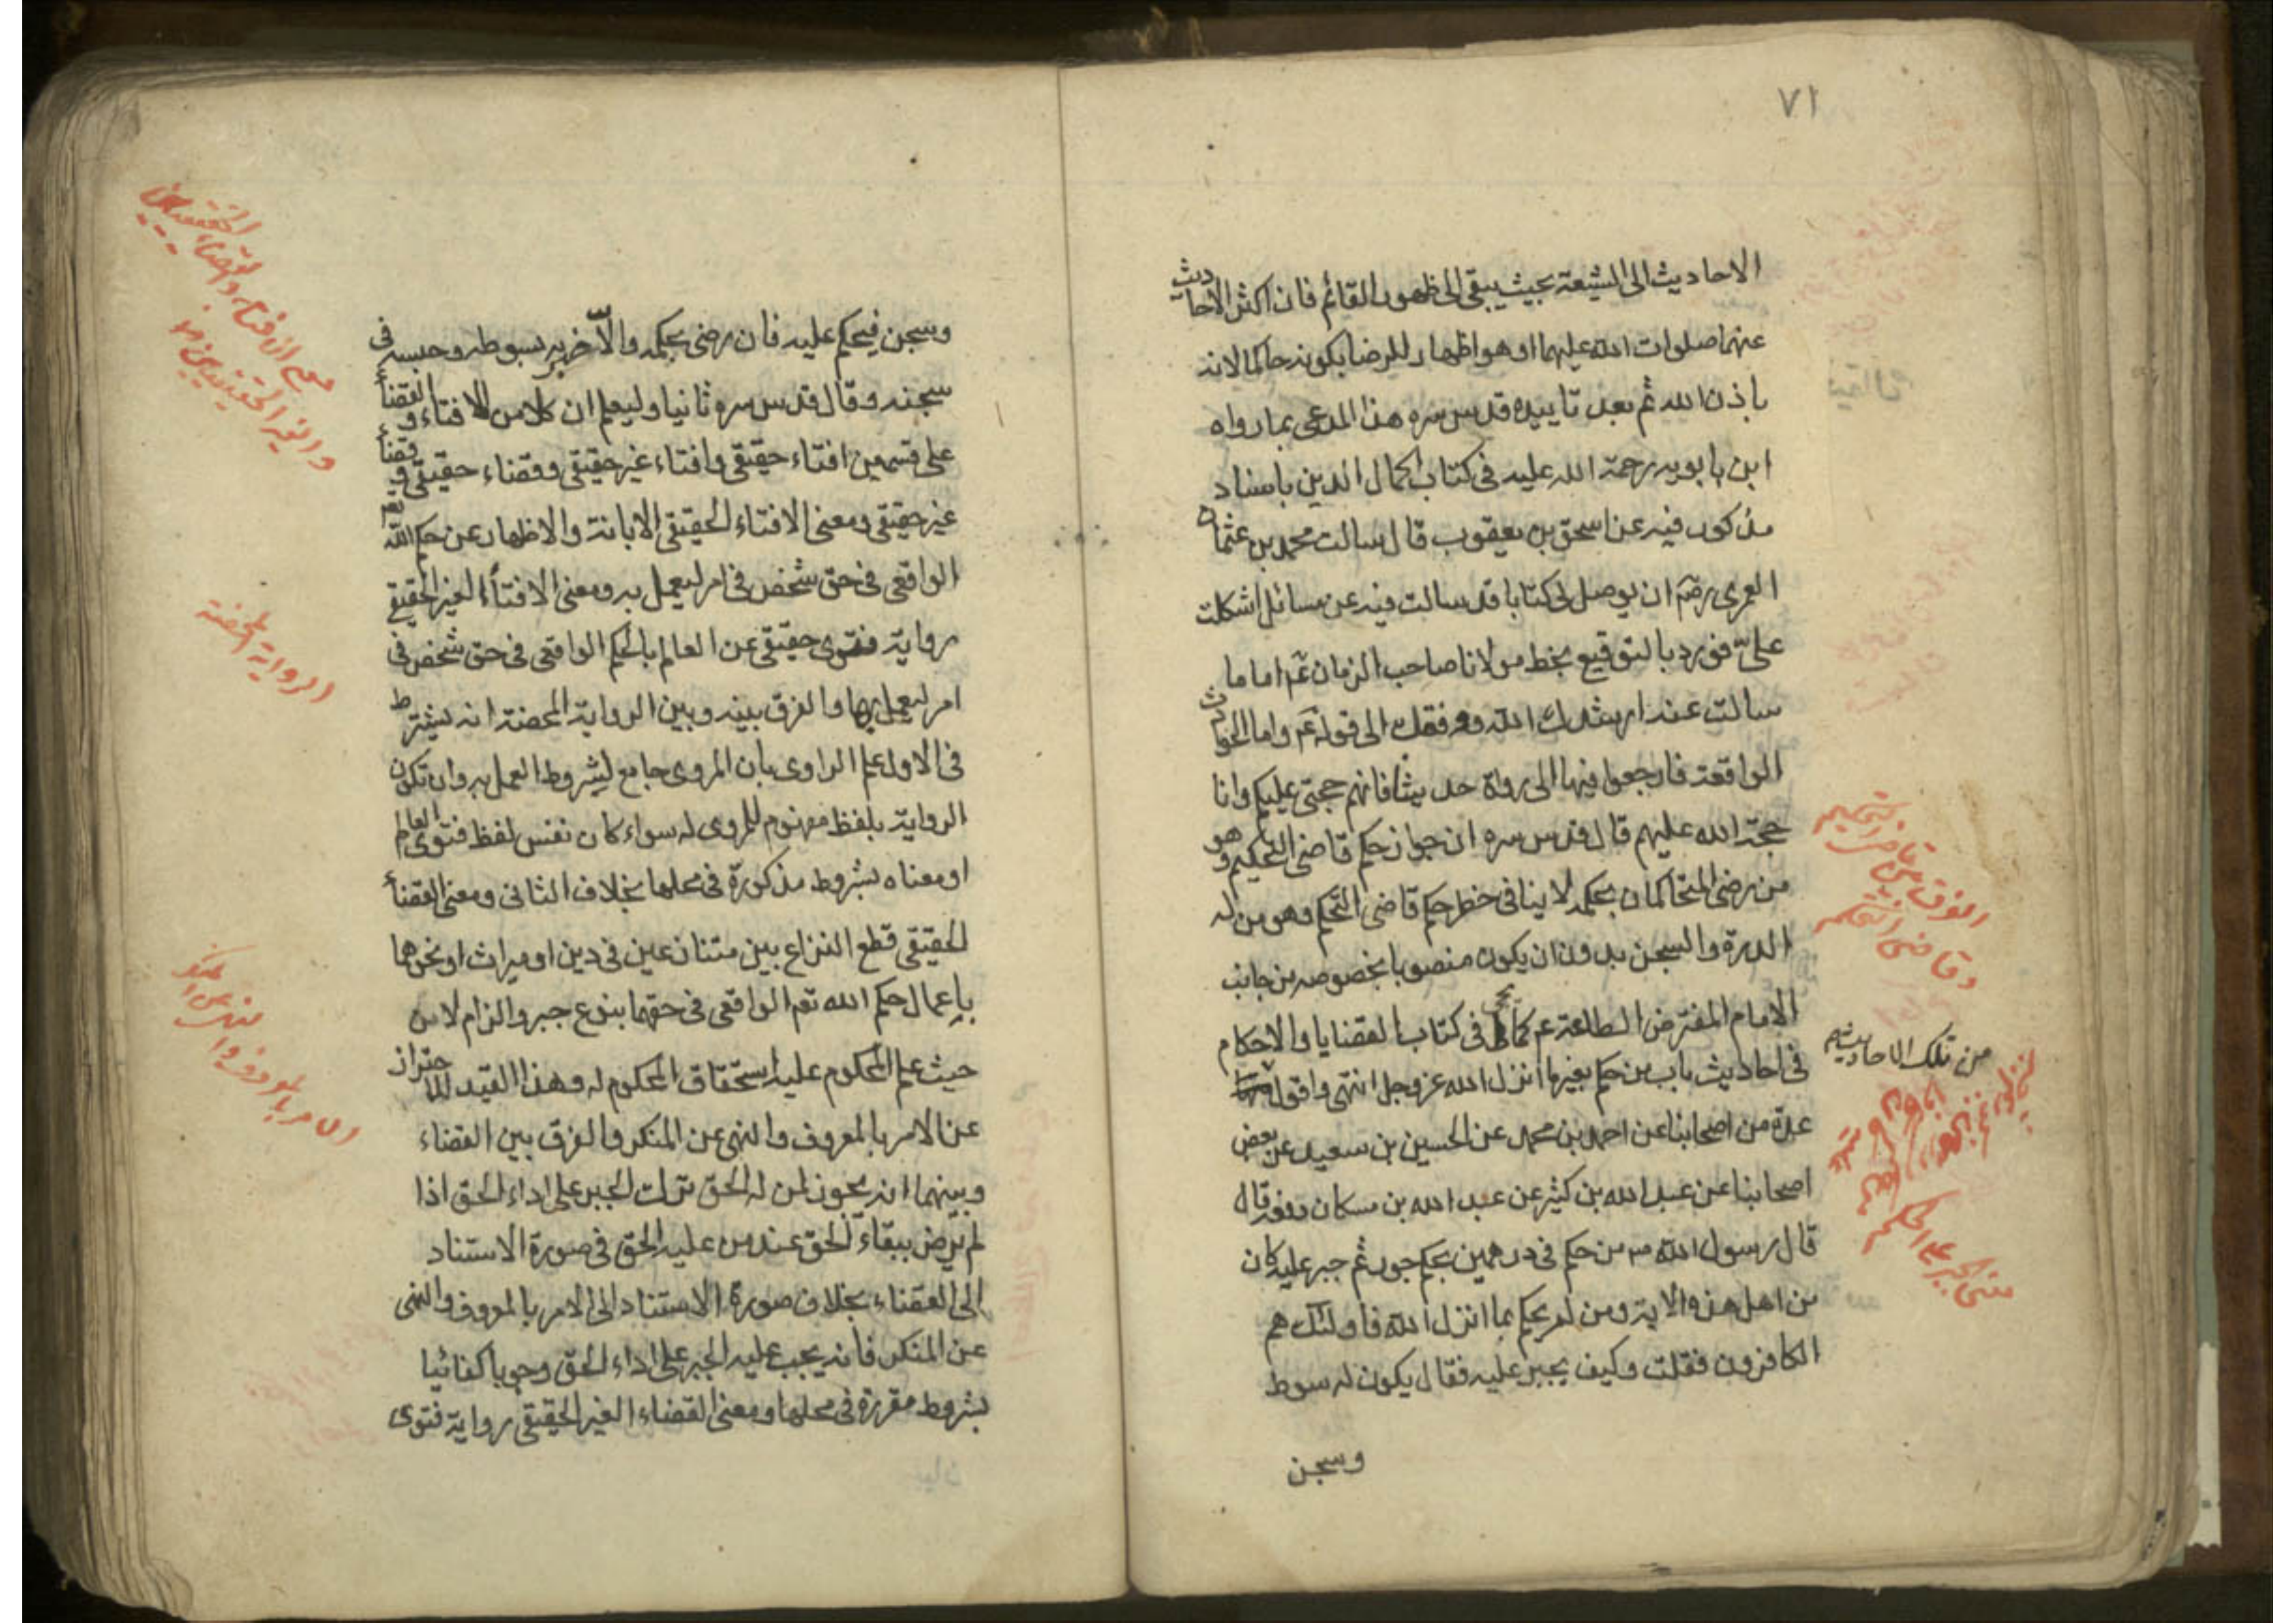 ٧١
الاحاديث الى الشيعة بحيث يبقى الى ظهور القائم فان اكثر الاحاديث
عنهما صلوات الله عليهما او هو اظهار للرضا بكونه حاكما لانه
باذن الله ثم بعد تاييده قدس سره هذا المدعى بما رواه
ابن بابويه رحمة الله عليه فى كتاب اكمال الدين باسناد
مذكور فيه عن اسحق بن يعقوب قال سالت محمد بن عثمان
العمرى رضه ان يوصل لى كتابا قد سالت فيه عن مسائل اشكلت
علىّ فورد بالتوقيع بخط مولانا صاحب الزمان عم اما ما
سالت عنه ارشدك الله ووفقك الى قوله عم واما الحوادث
الواقعة فارجعوا فيها الى رواة حديثنا فانهم حجتى عليكم وانا
حجة الله عليهم قال قدس سره ان جواز حكم قاضى التحكيم وهو
من رضى المتحاكمان بحكمه لا ينافى حظر حكم قاضى التحكم وهو من له
الدرة والسجن بدون ان يكون منصوبا بخصوصه من جانب
الامام المفترض الطاعة عم كما يجئ فى كتاب القضايا والاحكام
فى احاديث باب من حكم بغير ما انزل الله عز وجل انتهى واقول
من تلك الاحاديث
عدة من اصحابنا عن احمد بن محمد عن الحسين بن سعيد عن بعض
اصحابنا عن عبد الله بن كثير عن عبد الله بن مسكان رفعه قال
قال رسول الله ص من حكم فى درهمين بحكم جور ثم جبر عليه كان
من اهل هذه الاية ومن لم يحكم بما انزل الله فاولئك هم
الكافرون فقلت وكيف يجبر عليه فقال يكون له سوط
وسجن
الفرق بين قاضى
وقاضى التحكم
وسجن فيحكم عليه فان رضى بحكمه والّا ضربه بسوطه وحبسه فى
سجنه وقال قدس سره ثانيا وليعلم ان كلا من الافتاء والقضاء
على قسمين افتاء حقيقى وافتاء غير حقيقى وقضاء حقيقى وقضاء
غير حقيقى ومعنى الافتاء الحقيقى الابانة والاظهار عن حكم الله تعم
الواقعى فى حق شخص فى امر ليعمل به ومعنى الافتاء الغير الحقيقى
رواية فتوى حقيقى عن العالم بالحكم الواقعى فى حق شخص فى
امر ليعمل بها والفرق بينه وبين الرواية المحضة انه يشترط
فى الاول علم الراوى بان المروى جامع لشروط العمل به وان تكون
الرواية بلفظ مفهوم للمروى له سواء كان نفس لفظ فتوى العالم
او معناه بشروط مذكورة فى محلها بخلاف الثانى ومعنى القضاء
الحقيقى قطع النزاع بين متنازعين فى دين او ميراث او نحوهما
باعمال حكم الله تعم الواقعى فى حقهما بنوع جبر والزام لا من
حيث علم المحكوم عليه استحقاق المحكوم له وهذا القيد للاحتراز
عن الامر بالمعروف والنهى عن المنكر والفرق بين القضاء
وبينهما انه يجوز لمن له الحق ترك الجبر على اداء الحق اذا
لم يرض ببقاء الحق عند من عليه الحق فى صورة الاستناد
الى القضاء بخلاف صورة الاستناد الى الامر بالمعروف والنهى
عن المنكر فانه يجب عليه الجبر على اداء الحق وجوبا كفائيا
بشروط مقررة فى محلها ومعنى القضاء الغير الحقيقى رواية فتوى
معنى الافتاء والقضاء الحقيقيين
والغير الحقيقيين
الرواية المحضة
الامر بالمعروف والنهى عن المنكر